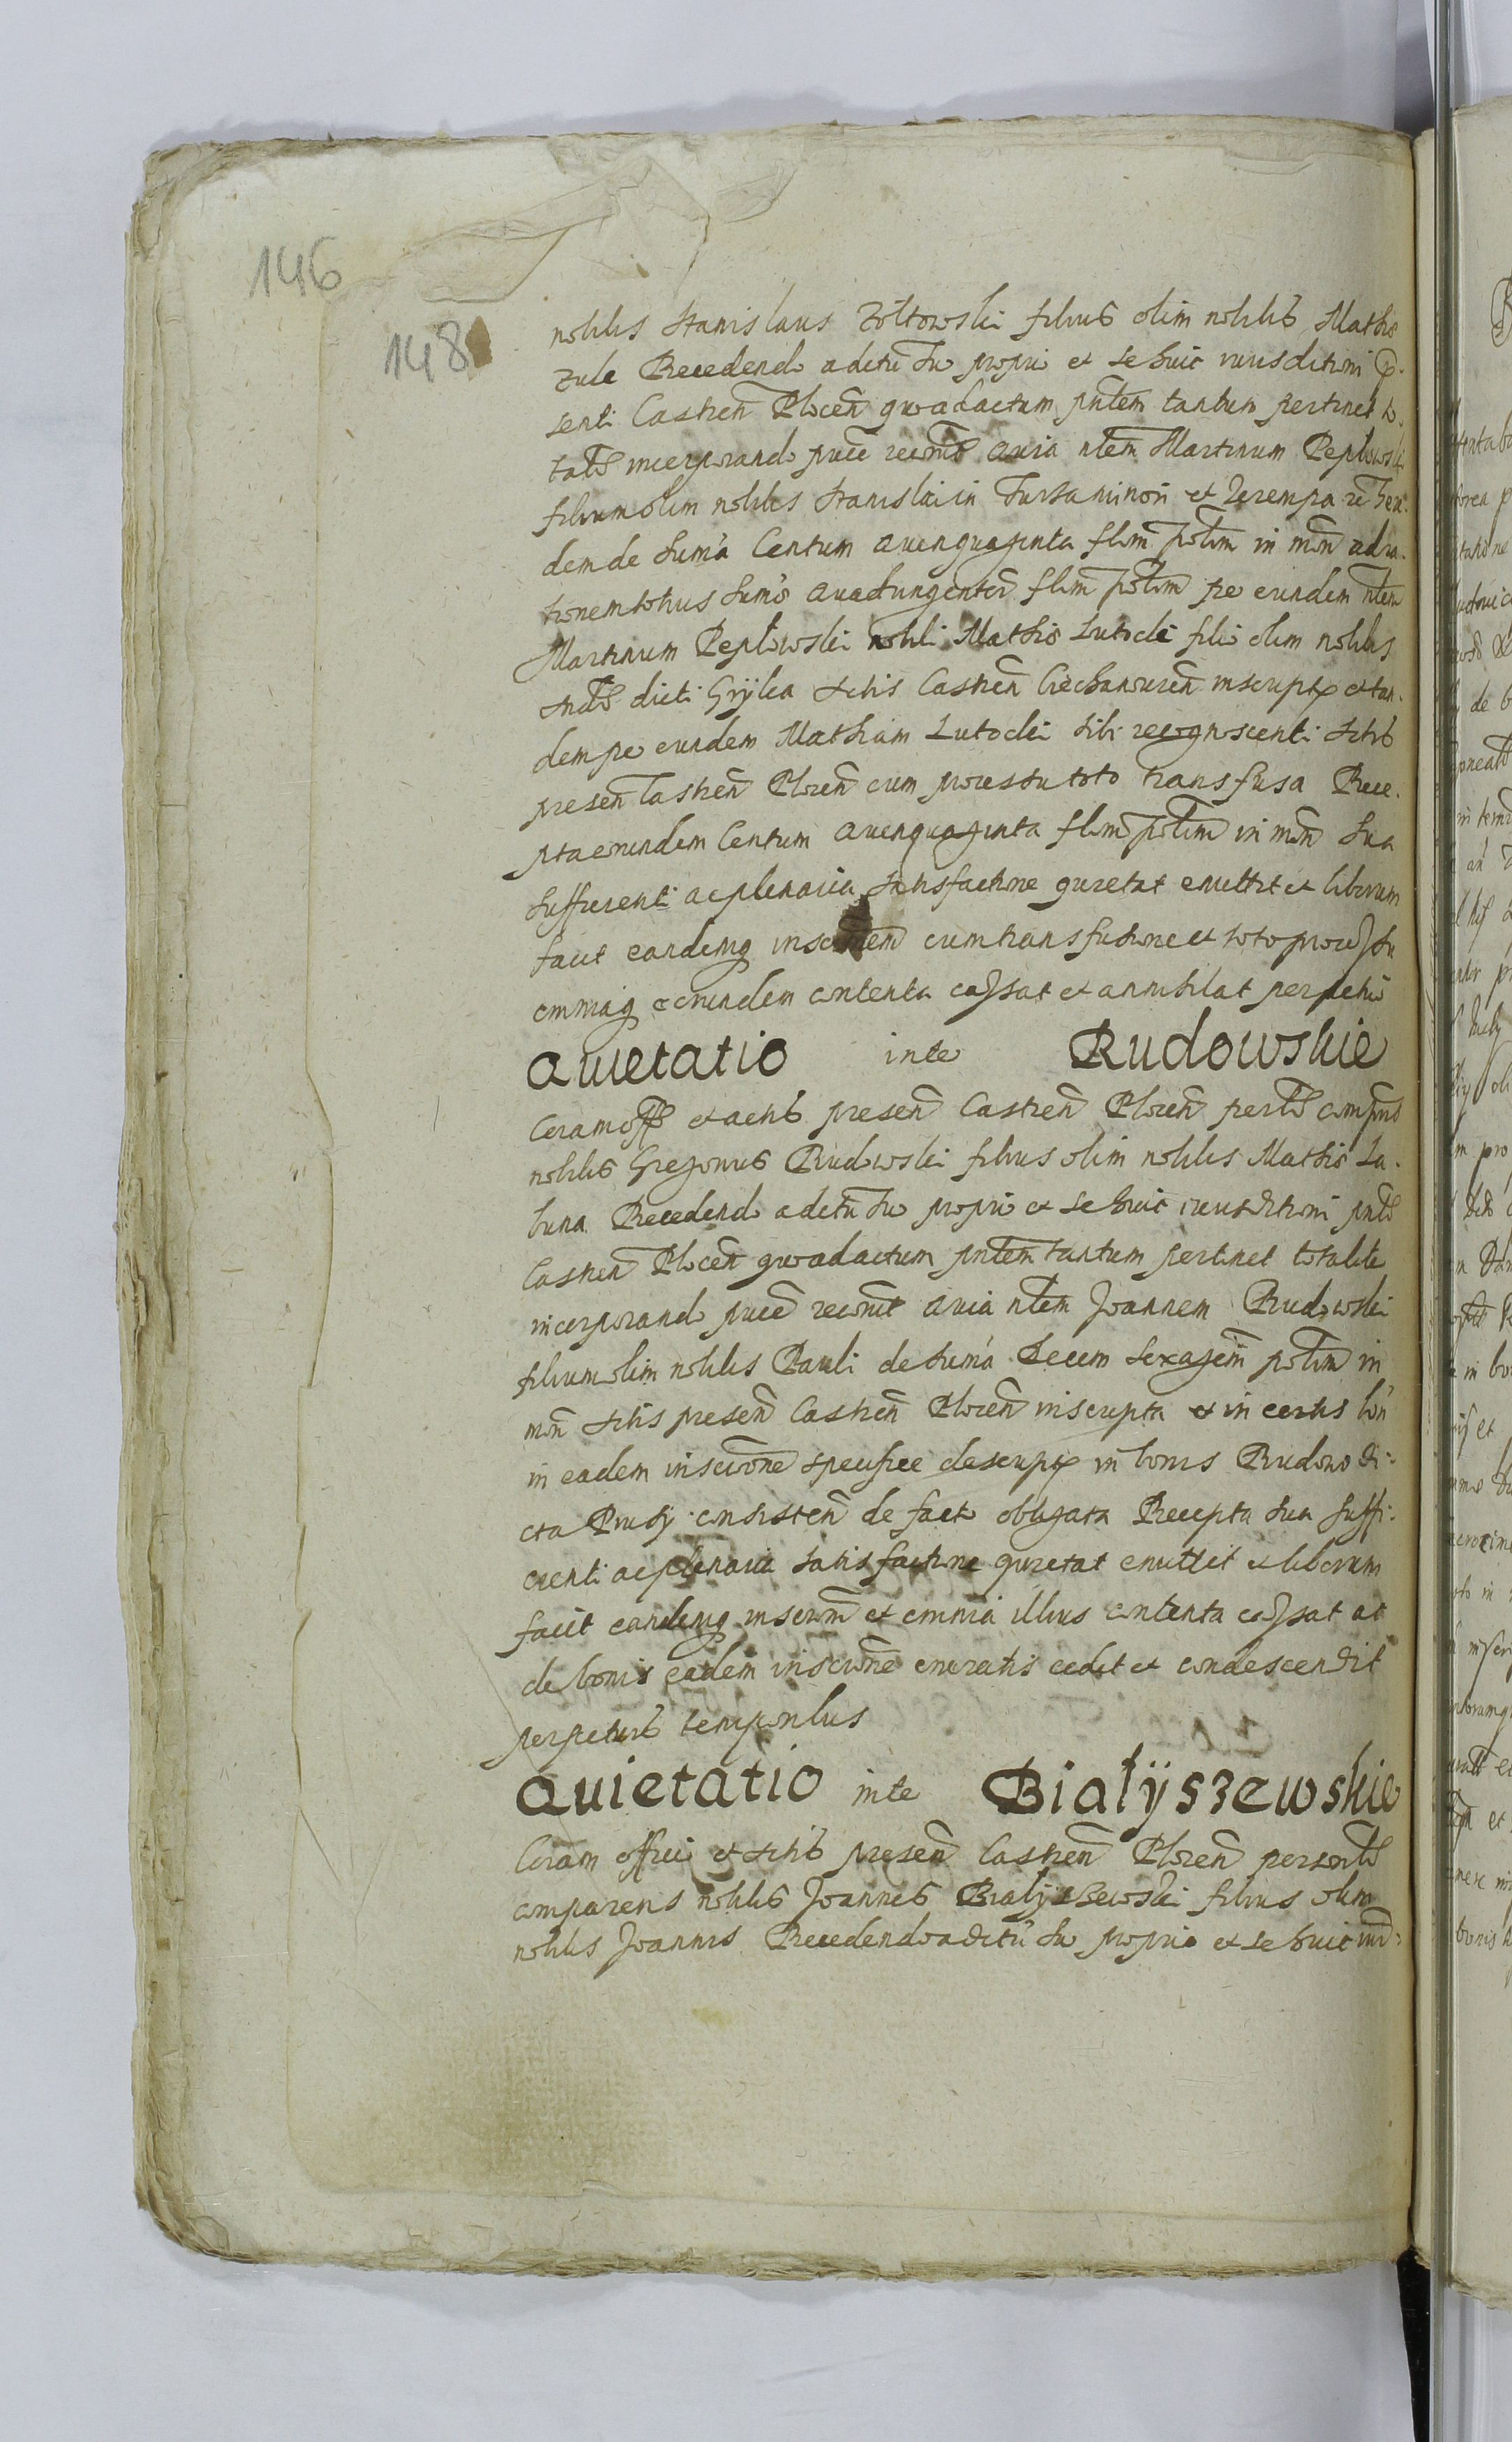 146
148
nobilis Stanislaus Zoltowski filius olim nobilis Mathie
Zule Recedendo a districtu suo proprio et se huic iurisditioni p-
senti Castren Plocen quo ad actum pntem tantum pertinet to-
talr incorporando puce recovit Quia nlem Martinum Peplowski
filium olim nobilis Stanislai in Tursa minori et heren-
dem de Suma Centum Quinquaginta flom polm in mon ad ra-
tionem totius Sume Quadringentor flom polm per eundem nlem
Martinum Peplowski nobili Mathie Lutocki filio olim nobilis
Andr dicti Gryka Actis Castren Ciechanouien inscripta et tan-
dem per eundem Mathiam Lutocki sibi recognoscenti Actis
presen Castren Plocen cum processu toto transfusa Rece-
pta eorundem Centum Quinquaginta flom polm in mon sua
sufficienti ac plenaria satisfactione quietat emittit et liberum
facit eandemq inscriptionem cum transfusione et toto processu
omniaq eorundem contenta cassat et annihilat perpetuo
Quietatio inter Rudowskie
Coram offo et actis presen Castren Plocen perlr comprns
nobilis Gregorius Rudowski filius olim nobilis Mathie La-
buna Recedendo a districtu suo proprio et se huic iurisditioni pnti
Castren Plocen quo ad actum pntem tantum pertinet totaliter
incorporando puce recovit Quia nlem Joannem Rudowski
filium olim nobilis Pauli de suma Decem sexagem polm in
mon Actis presen Castren Plocen inscripta et in certis bon
in eadem inscrone specifice descriptis in bonis Rudowo di-
cta Prusy consisten de facto obligata Recepta sua suffi-
cienti ac plenaria satisfactione quietat emittit et liberum
facit eandemq inscrom et omnia illius contenta cassat ac
de bonis eadem inscrone oneratis cedit et condescendit
perpetuis temporibus
Quietatio inter Bialÿszewskie
Coram officio et Actis presen Castren Plocen personlr
comparens nobilis Joannes Bialÿszewski filius olim
nobilis Joannis Recedendo a districtu suo proprio et se huic iurd-